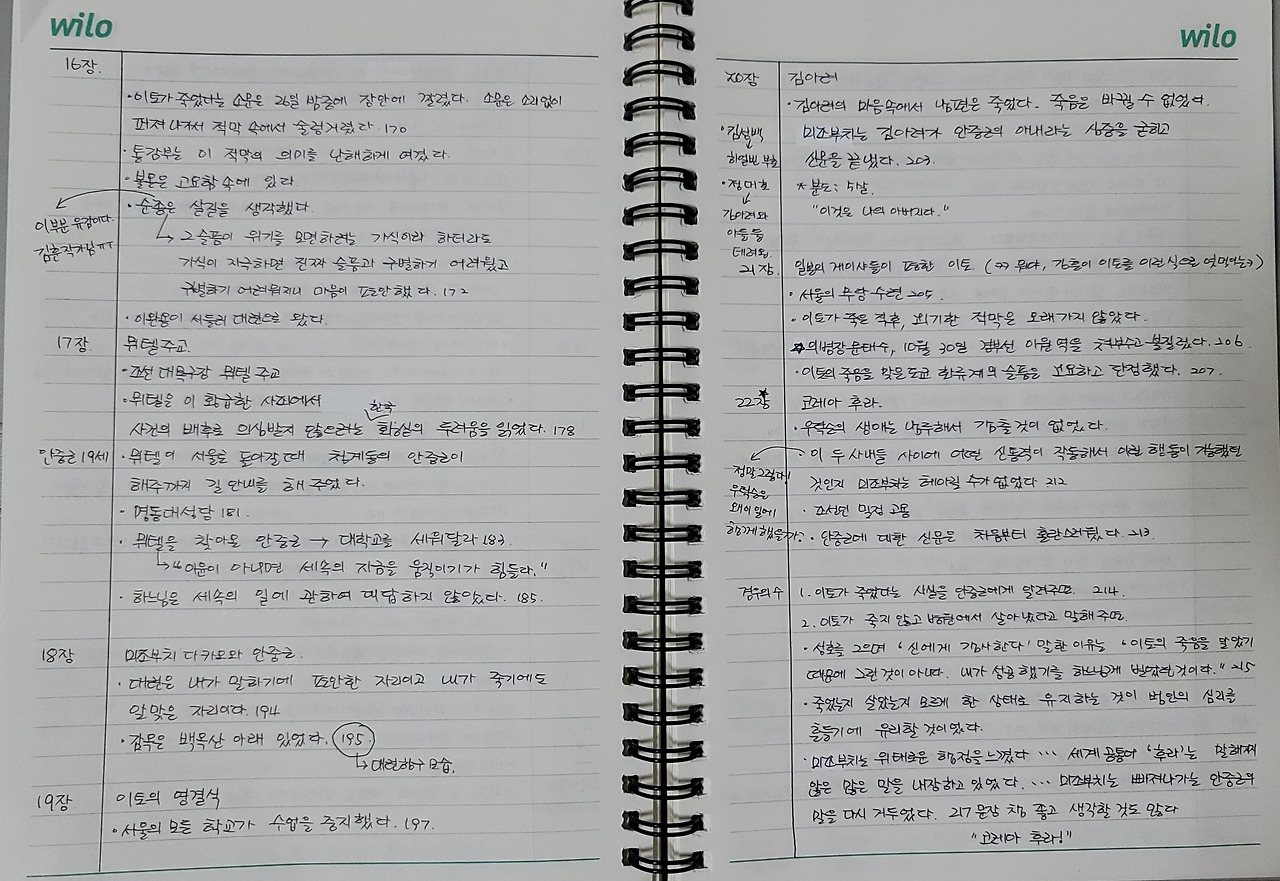 wilo
16장.
·이토가 죽었다는 소문은 26일 밤중에 장안에 깔렸다. 소문은 소리없이
퍼져나가서 적막 속에서 술렁거렸다. 170
·통감부는 이 적막의 의미를 난해하게 여겼다.
·불온은 고요함 속에 있다.
·순종은 살길을 생각했다.
이부분 유감이다.
김훈작가님 ㅠㅠ
↳ 그 슬픔이 위기를 모면하려는 가식이라 하더라도
가식이 지극하면 진짜 슬픔과 구별하기 어려웠고
구별하기 어려워지니 마음이 편안했다. 172
·이완용이 서둘러 대련으로 왔다.
17장. 뮈텔주교.
·조선 대목구장 뮈텔 주교
·뮈텔은 이 황급한 사죄에서
한국
사건의 배후로 의심받지 않으려는 황실의 두려움을 읽었다. 178
안중근 19세
·뮈텔이 서울로 돌아갈 때 청계동의 안중근이
해주까지 길 안내를 해 주었다.
·명동대성당 181.
·뮈텔을 찾아온 안중근 → 대학교를 세워달라 183.
↳ "이윤이 아니면 세속의 자금을 움직이기가 힘들다."
·하느님은 세속의 일에 관하여 대답하지 않았다. 185.
18장 미조부치 다카오와 안중근.
·대련은 내가 말하기에 편안한 자리이고 내가 죽기에도
알맞은 자리이다. 194
·감옥은 백옥산 아래 있었다. 195
↳대련항구 모습.
19장 이토의 영결식
·서울의 모든 학교가 수업을 중지했다. 197.
wilo
20장 김아려
·김아려의 마음속에서 남편은 죽었다. 죽음은 바뀔 수 없었다.
·김성백
하얼빈 부호
미조부치는 김아려가 안중근의 아내라는 심증을 굳히고
신문을 끝냈다. 203.
·정대호
↓
김아려와
아들들
데려옴.
*분도: 5살.
"이것은 나의 아버지다."
21장. 일본의 게이샤들이 표한 이토. (?? 뭐야, 김훈이 이토를 이런식으로 엿먹이는?)
·서울의 무당 수련 205.
·이토가 죽은 직후, 괴기한 적막은 오래가지 않았다.
*의병장 윤태수, 10월 30일 경부선 이원역을 쳐부수고 불질렀다. 206.
·이토의 죽음을 맞은 도쿄 한류계의 슬픔은 고요하고 단정했다. 207.
22장* 코레아 후라.
·우덕순의 생애는 남루해서 감출 것이 없었다.
· 이 두 사내들 사이에 어떤 신통력이 작동해서 이런 행동이 가능했던
것인지 미조부치는 헤아릴 수가 없었다 212
정말그렇다!
우덕순은
왜 이 일에
함께 했을까?
·조선인 밀정 고용
·안중근에 대한 신문은 처음부터 혼란스러웠다. 213.
경우의 수
1. 이토가 죽었다는 사실을 안중근에게 알려주면. 214.
2. 이토가 죽지 않고 병원에서 살아났다고 말해주면.
·성호를 그으며 '신에게 감사한다' 말한 이유는 '이토의 죽음을 알았기
때문에 그런 것이 아니다. 내가 성공했기를 하느님께 빌었던 것이다." 215
·죽었는지 살았는지 모르게 한 상태로 유지하는 것이 범인의 심리를
흔들기에 유리할 것이었다.
·미조부치는 위태로운 함정을 느꼈다 ··· 세계 공통어 '후라'는 말해지지
않은 많은 말을 내장하고 있었다. ··· 미조부치는 삐져나가는 안중근의
말을 다시 거두었다. 217 문장 참 좋고 생각할 것도 많다
"코레아 후라!"